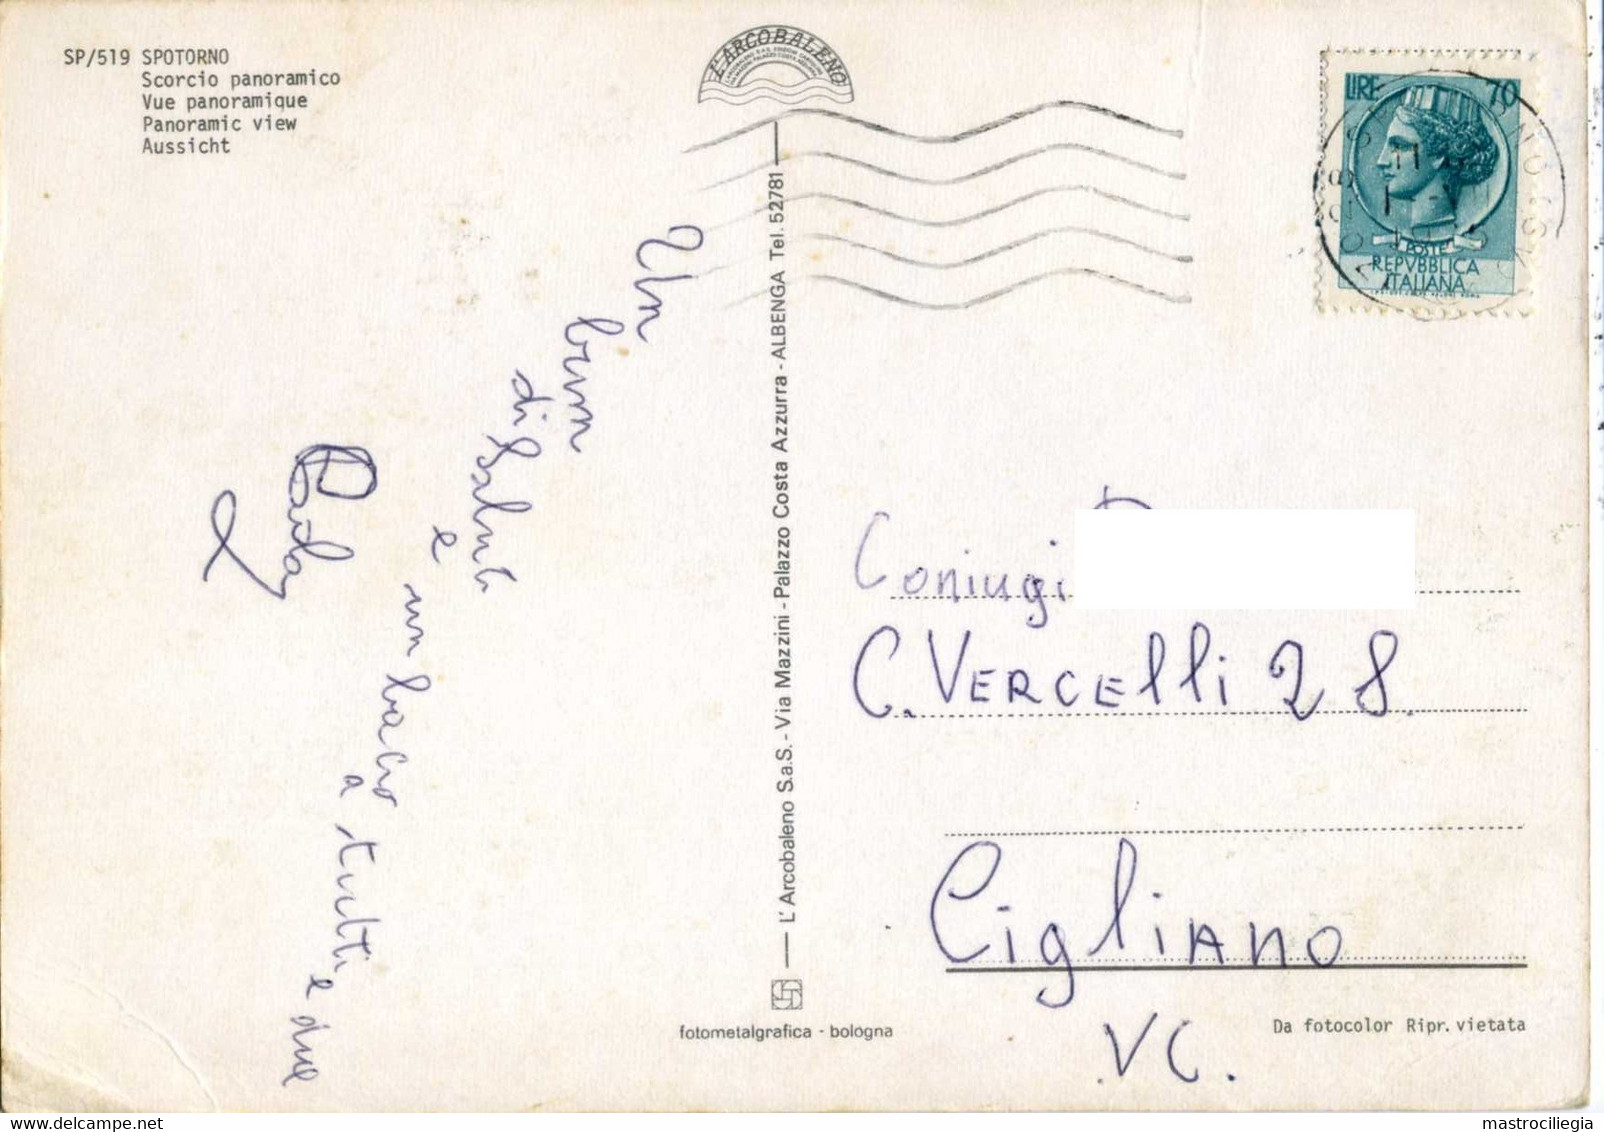 SP/519 SPOTORNO
Scorcio panoramico
Vue panoramique
Panoramic view
Aussicht
L'ARCOBALENO
LIRE 70
POSTE
REPVBBLICA
ITALIANA
Un
di Saluti
e
un bacio
a tutti e due
Paola
L'Arcobaleno S.a.S. - Via Mazzini - Palazzo Costa Azzurra - ALBENGA Tel. 52781
Coniugi
C. VERCElli 28.
CiglIANO
VC.
fotometalgrafica - bologna
Da fotocolor Ripr. vietata
mastrociliegia